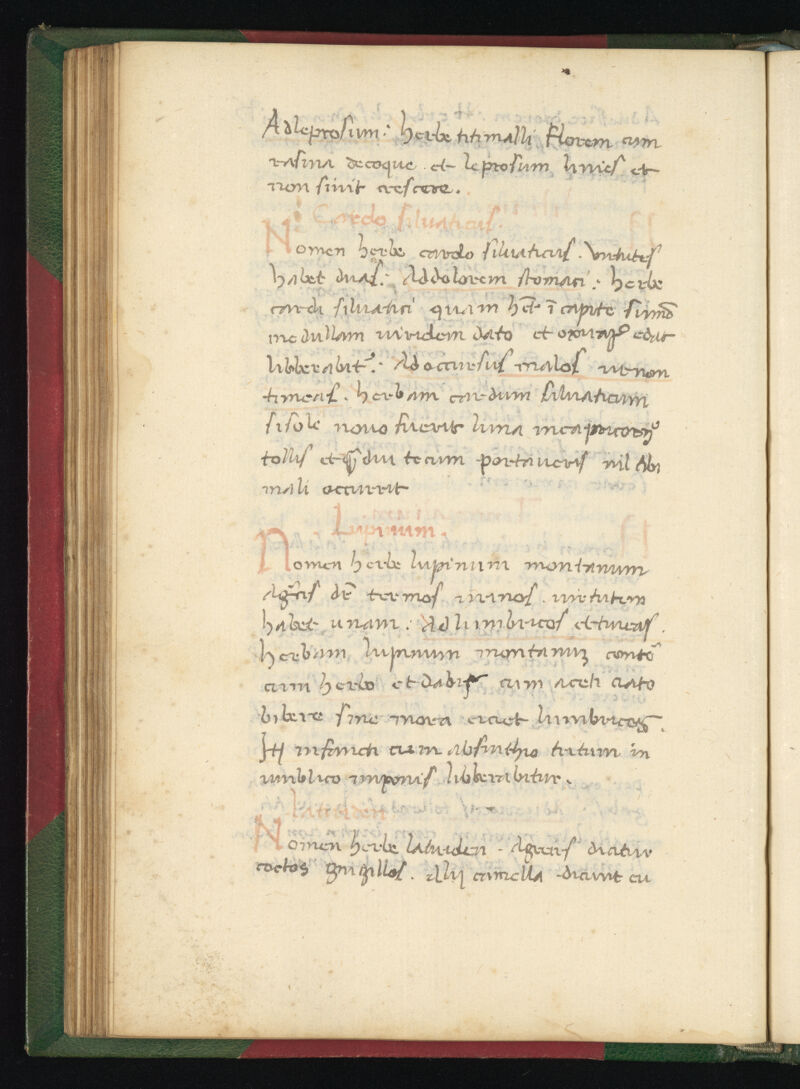 Ad leprosum: herbe titimalli Florem cum
rasina decoque et leprosum linies et
non sinit crescere.
Cardo siluaticus.
Nomen herbe cardo siluaticus. Virtutes
habet duas: Ad dolorem stomaci: herbe
cardi siluatici quam hēt ī capite sūmo
medullam uiridem dato et edat
libberabit᷑: Ad occursus malos ut non
timeas. herbam cardum siluaticum
si sole nouo fuerit luna in capricorn᷑
tollis et diu tecum portaueris nil tibi
mali occurrit
Lupinum.
Nomen herbe lupinum montanum
dr̄ termos mirinos. uirtutem
habet unam: Ad lumbricos et tineas.
herbam lupinum montanuȝ
cum herbo et dabis cum aceti ciato
bibere sine mora eiciet lumbricos.
infanti cum absinthio tritum in
umblico imponis libberabitur.
Nomen herbe latiriden. Agrecis dicitur
coctos gnigillos. Alij camella dicunt eu